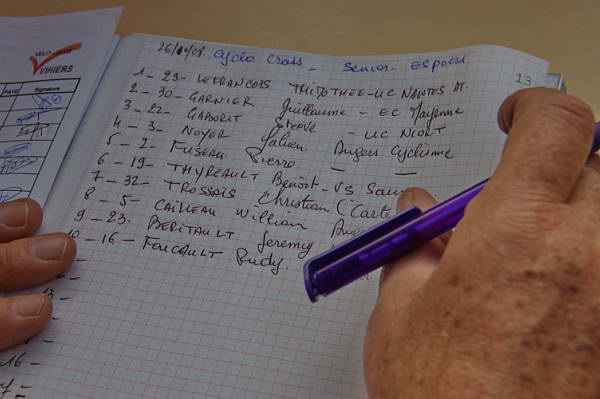 VELO CLUB
VIHIERS
DATE Signature
26/10/08 Cyclo Cross - Senior - Espoirs
13
1 - 29 - LEFRANCOIS THIMOTHEE - UC NANTES AT.
2 - 30 - GARNIER Guillaume - EC Mayenne
3 - 22 - GABORIT Steeve - UC NIORT
4 - 3 - NOYER Julien Angers Cyclisme
5 - 2 - FUSEAU Pierre - -
6 - 19 - THYREAULT Benoit - VS Saum
7 - 32 - TROSSAIS Christian (Carte
8 - 5 - CAILLEAU William Ang
9 - 23. BERITAULT Jeremy
10 - 16 - FOUCAULT Rudy.
16 -